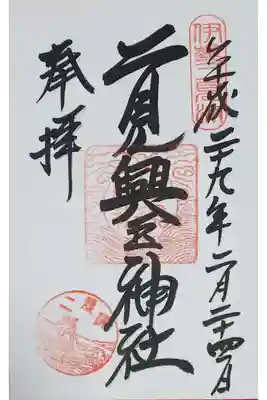 伊勢二見浦
平成二十九年二月二十四日
二見興玉神社
奉拝